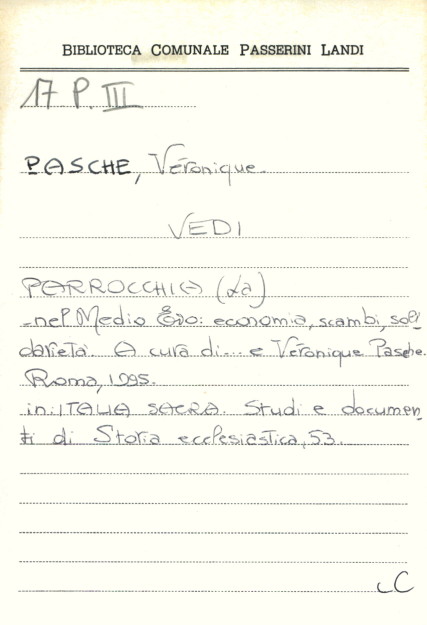 BIBLIOTECA COMUNALE PASSERINI LANDI
17 P. III
PASCHE, Véronique.
VEDI
PARROCCHIA (La)
nel Medio Evo: economia, scambi, soli
darietà. A cura di... e Véronique Pasche.
Roma, 1995.
in: ITALIA SACRA. Studi e documen
ti di Storia ecclesiastica, 53.
LC